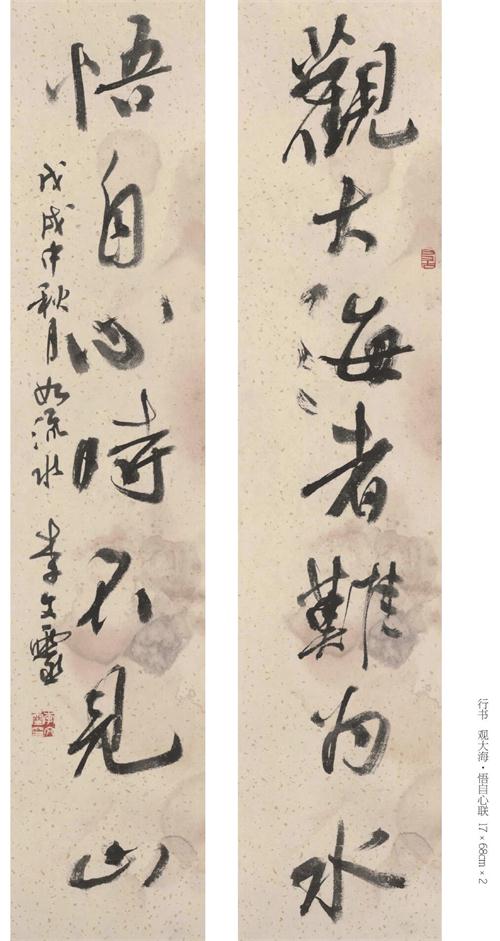 觀大海者難為水
悟自心時不見山
戊戌中秋月如流水 李文
行书 观大海·悟自心联 17×68cm×2